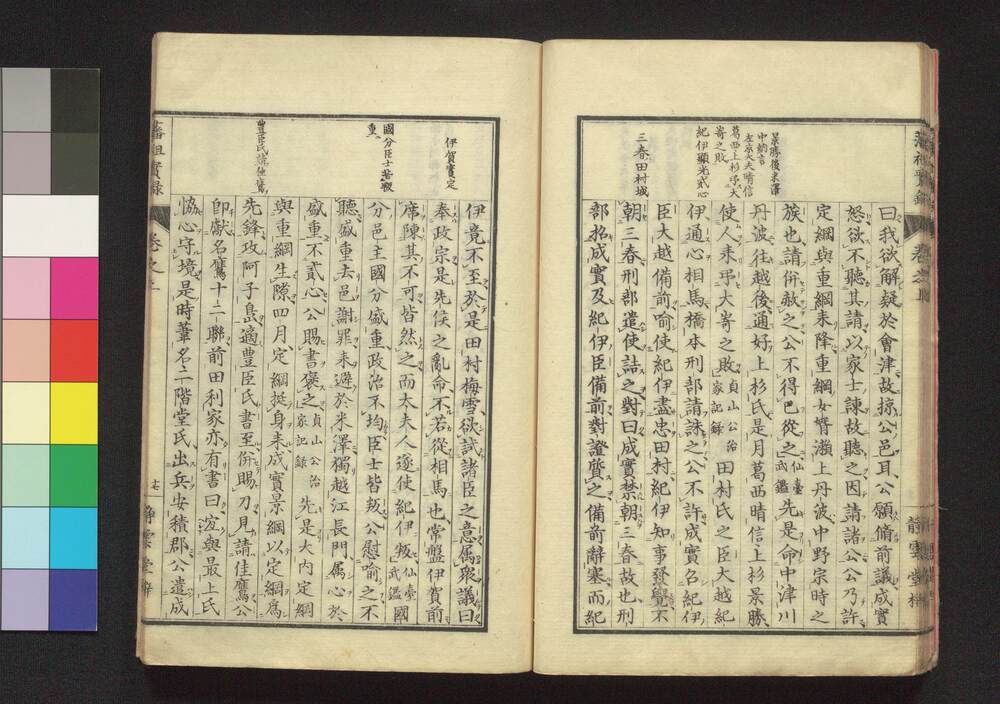 曰我欲解疑於會津故掠公邑耳公願脩前議成實
怒欲不聽其請以家士諫故聽之因請諸公公乃許
定綱與重綱来降重綱女壻瀬上丹波中野宗時之
族也請併赦之公不得已從之仙臺武鑑先是命中津川
丹波往越後通好上杉氏是月葛西晴信上杉景勝
使人来弔大寄之敗貞山公治家記録田村氏之臣大越紀
伊通心相馬橋本刑部請誅之公不許成實召紀伊
臣大越備前喻使紀伊盡忠田村紀伊知事發覺不
朝三春刑部遣使詰之對曰成實禁朝三春故也刑
部招成實及紀伊臣備前對證質之備前辭塞而紀
景勝後米澤
中納言
左京大夫晴信
葛西上杉弔大
寄之敗
紀伊顯光貳心
三春田村城
伊竟不至於是田村梅雪欲試諸臣之意属衆議曰
奉政宗是先侯之亂命不若從相馬也常盤伊賀前
席陳其不可皆然之而大夫人遂使紀伊叛仙臺武鑑國
分邑主國分盛重政治不均臣士皆叛公慰喻之不
聽盛重去邑謝罪来遊於米澤獨越江長門属心於
盛重不貳心公賜書褒之貞山公治家記録先是大内定綱
與重綱生隙四月定綱挺身来成實景綱以定綱為
先鋒攻阿子島適豊臣氏書至併賜刀見請佳鷹公
即獻名鷹十二聯前田利家亦有書曰宜與最上氏
恊心守境是時葦名二階堂氏出兵安積郡公遣成
伊賀實定
國分臣士若叛
重
豊臣氏請佳鷹
藩祖實録
卷之上